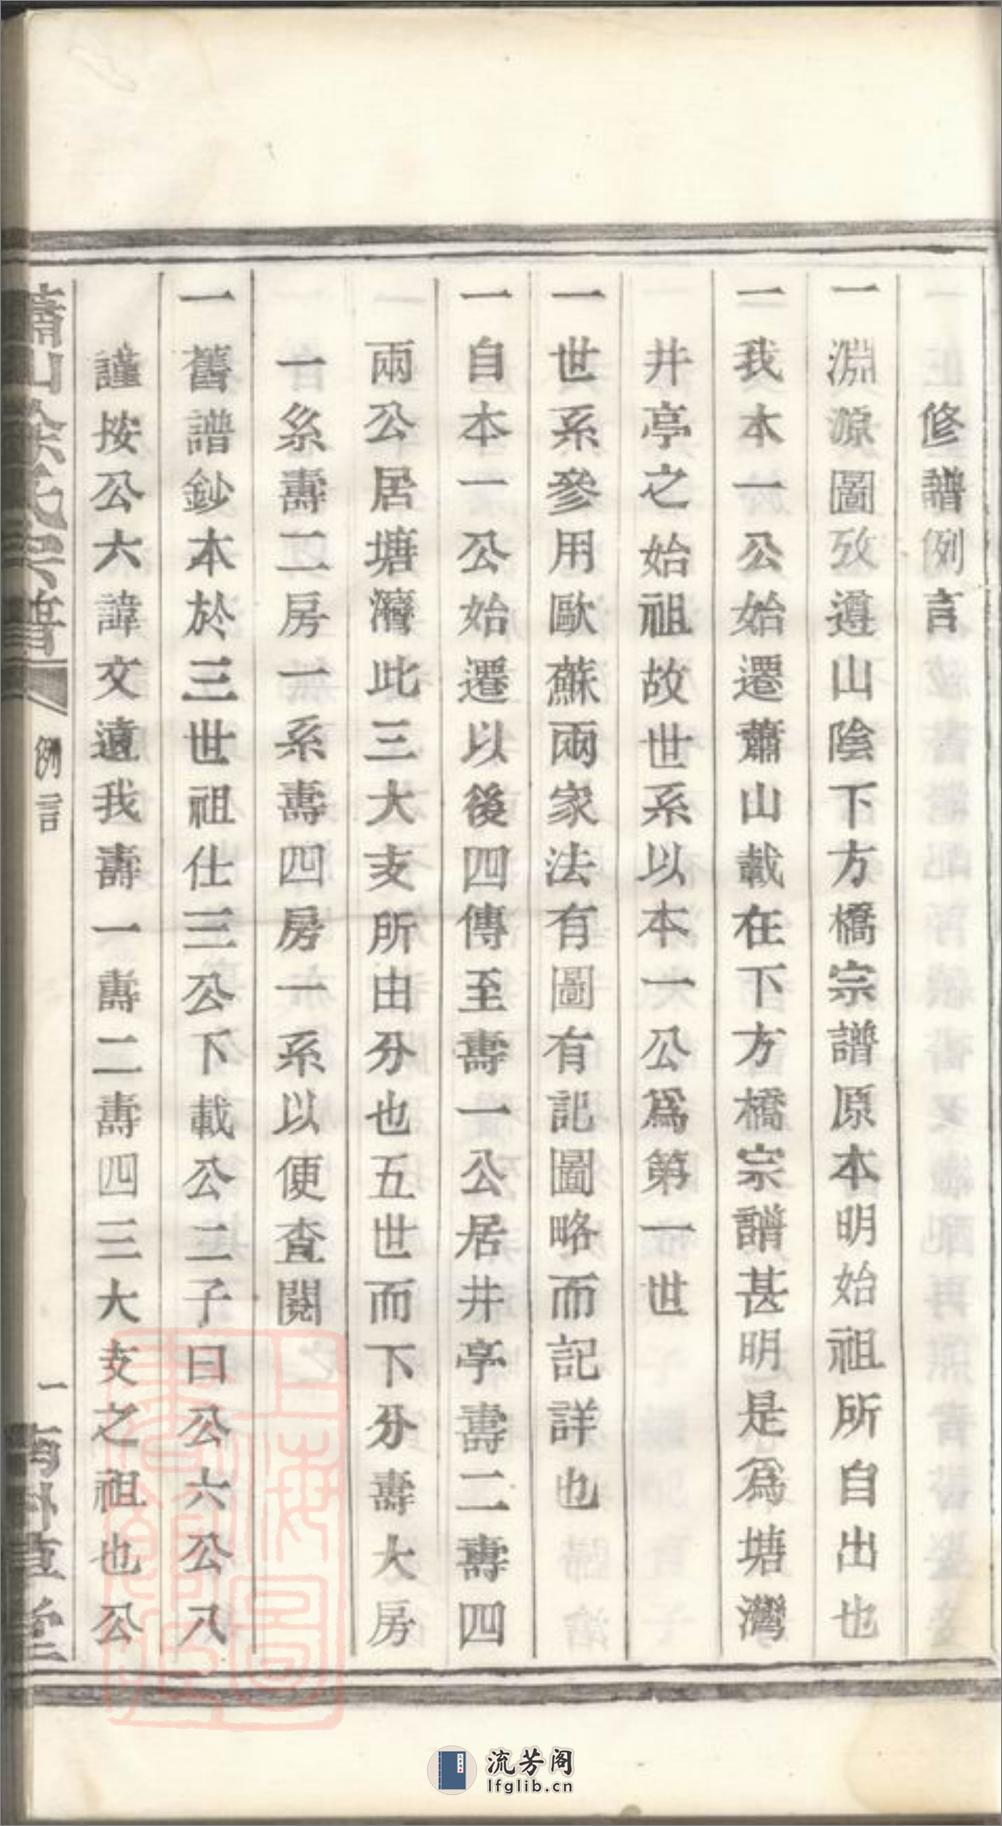 修譜例言
一淵源圖攷遵山陰下方橋宗譜原本明始祖所自出也
一我本一公始遷蕭山載在下方橋宗譜甚明是爲塘灣
井亭之始祖故世系以本一公爲第一世
一世系參用歐蘇兩家法有圖有記圖略而記詳也
一自本一公始遷以後四傳至壽一公居井亭壽二壽四
兩公居塘灣此三大支所由分也五世而下分壽大房
一系壽二房一系壽四房一系以便查閱
一舊譜鈔本於三世祖仕三公下載公二子曰公六公八
謹按公六諱文遠我壽一壽二壽四三大支之祖也公
蕭山徐氏宗譜
例言
一
南州草堂
上海圖書館藏
流芳阁
lfglib.cn